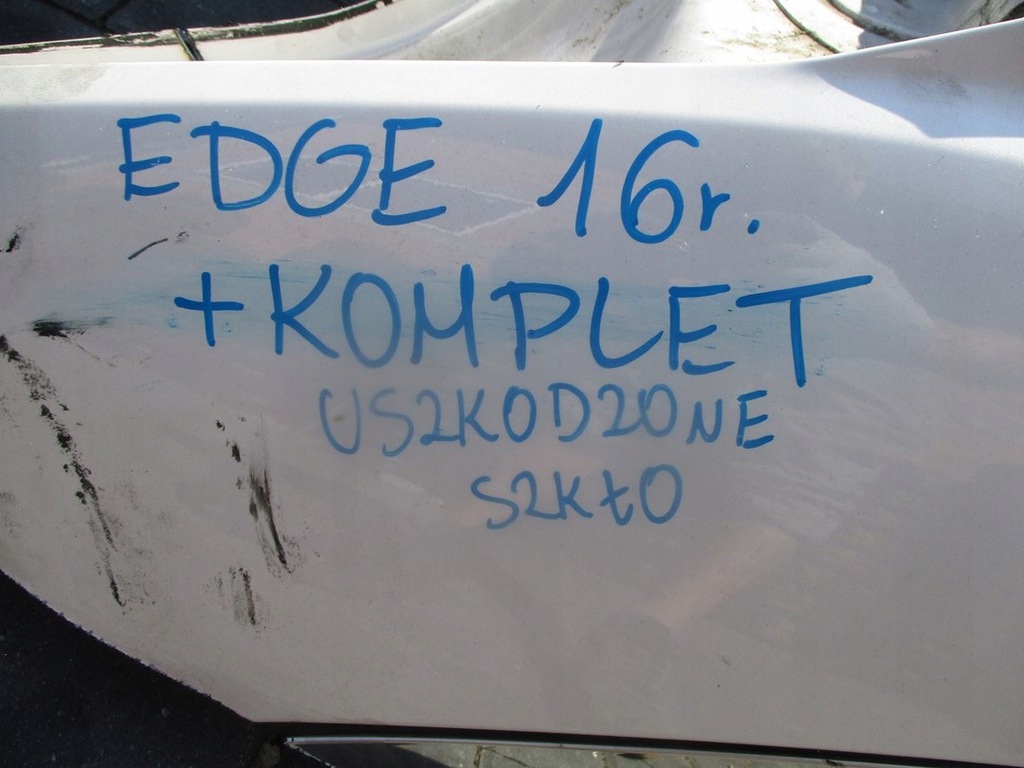 EDGE 16r.
+KOMPLET
USZKODZONE
SZKŁO